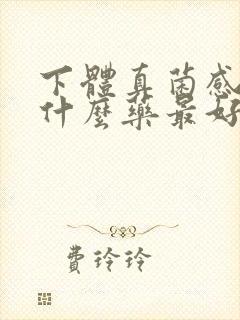 下體真菌感
什麼藥最好
費玲玲